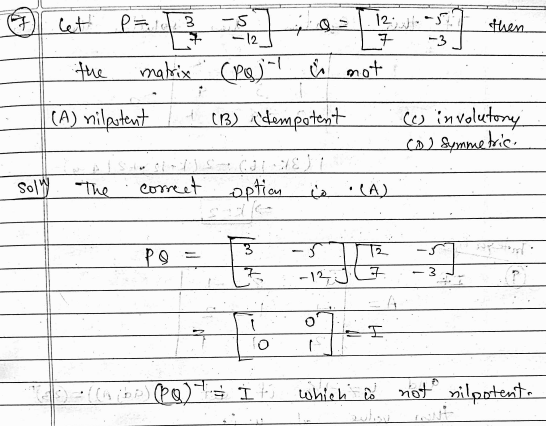 (7) Let P = [3 -5 7 -12], Q = [12 -5 7 -3] then
the matrix (PQ)^-1 is not
(A) nilpotent (B) idempotent (C) involutory
(D) Symmetric.
Solⁿ The correct option is (A)
PQ = [3 -5 7 -12] [12 -5 7 -3]
= [1 0 0 1] = I
(PQ)^-1 = I which is not nilpotent.